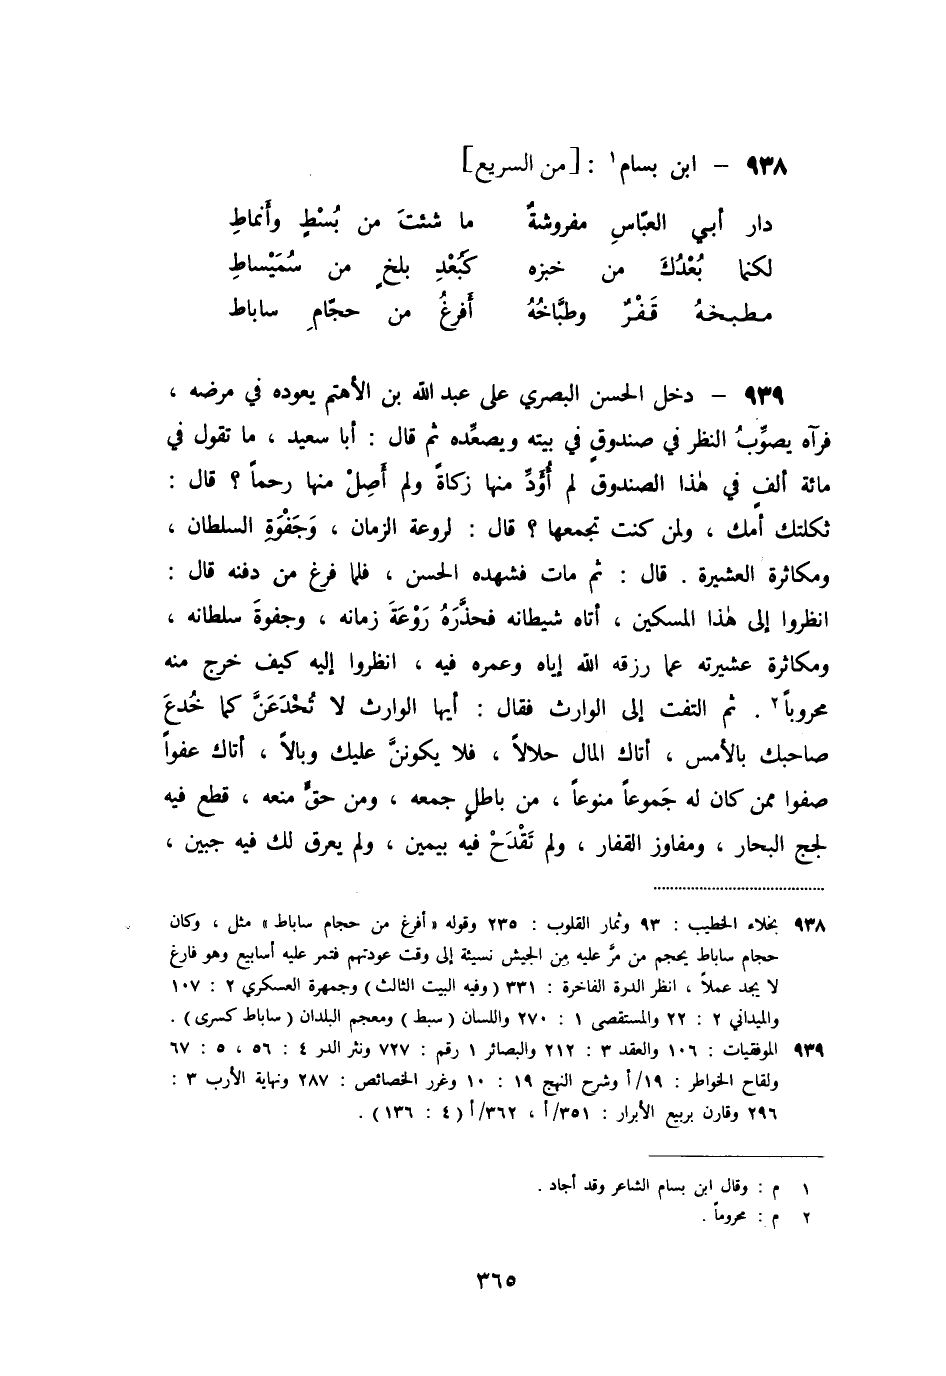 ٩٣٨ – ابن بسام١ : [من السريع]
دار أبي العبّاسِ مفروشةٌ ما شئتَ من بُسْطٍ وأنماطِ
لكنما بُعْدُكَ من خبزه كَبُعْدِ بلخٍ من سُمَيْساطِ
مطبخهُ قَفْرٌ وطبَّاخُهُ أَفرغُ من حجّامِ ساباط
٩٣٩ – دخل الحسن البصري على عبد الله بن الأهتم يعوده في مرضه ،
فرآه يصوِّبُ النظر في صندوقٍ في بيته ويصعِّده ثم قال : أبا سعيد ، ما تقول في
مائة ألفٍ في هٰذا الصندوق لم أُؤَدِّ منها زكاةً ولم أَصِلْ منها رحماً ؟ قال :
ثكلتك أمك ، ولمن كنت تجمعها ؟ قال : لروعة الزمان ، وَجَفْوَةِ السلطان ،
ومكاثرة العشيرة . قال : ثم مات فشهده الحسن ، فلما فرغ من دفنه قال :
انظروا إلى هٰذا المسكين ، أتاه شيطانه فحذَّرَهُ رَوْعَةَ زمانه ، وجفوةَ سلطانه ،
ومكاثرة عشيرته عما رزقه الله إياه وعمره فيه ، انظروا إليه كيف خرج منه
محروباً٢ . ثم التفت إلى الوارث فقال : أيها الوارث لا تُخْدَعَنَّ كما خُدعَ
صاحبك بالأمس ، أتاك المال حلالاً ، فلا يكوننَّ عليك وبالاً ، أتاك عفواً
صفوا ممن كان له جَموعاً منوعاً ، من باطلٍ جمعه ، ومن حقٍّ منعه ، قطع فيه
لجج البحار ، ومفاوز القفار ، ولم تَقْدَحْ فيه بيمين ، ولم يعرق لك فيه جبين ،
٩٣٨ بخلاء الخطيب : ٩٣ وثمار القلوب : ٢٣٥ وقوله « أفرغ من حجام ساباط » مثل ، وكان
حجام ساباط يحجم من مرَّ عليه مِن الجيش نسيئة إلى وقت عودتهم فتمر عليه أسابيع وهو فارغ
لا يجد عملاً ، انظر الدرة الفاخرة : ٣٣١ (وفيه البيت الثالث) وجمهرة العسكري ٢ : ١٠٧
والميداني ٢ : ٢٢ والمستقصى ١ : ٢٧٠ واللسان (سبط) ومعجم البلدان (ساباط كسرى) .
٩٣٩ الموفقيات : ١٠٦ والعقد ٣ : ٢١٢ والبصائر ١ رقم : ٧٢٧ ونثر الدر ٤ : ٥٦ ، ٥ : ٦٧
ولقاح الخواطر : ١٩/أ وشرح النهج ١٩ : ١٠ وغرر الخصائص : ٢٨٧ ونهاية الأرب ٣ :
٢٩٦ وقارن بربيع الأبرار : ٣٥١/أ ، ٣٦٢/أ (٤ : ١٣٦) .
١ م : وقال ابن بسام الشاعر وقد أجاد .
٢ م : محروماً .
٣٦٥